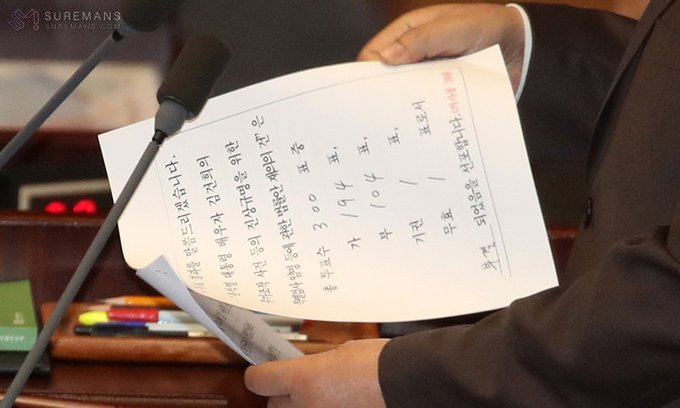 SUREMANS
SUREMANS.COM
결과를 말씀드리겠습니다.
윤석열 대통령 배우자 김건희의
주가조작 사건 등의 진상규명을 위한
특별검사임명 등에 관한 법률안 재의의 건"은
총 투표수 300 표 중
가 194 표,
부 104 표,
기권 1 표,
무효 1 표로서
부결 되었음을 선포합니다. (의사봉 3타)